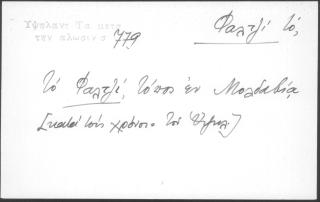 Υψηλαντ Τα μετα
την αλωσιν σ 779
Φαλτζί τό,
τό Φαλτζί, τόπος ἐν Μολδαβίᾳ
[κατά τούς χρόνους τοῦ Ὑψηλ.]